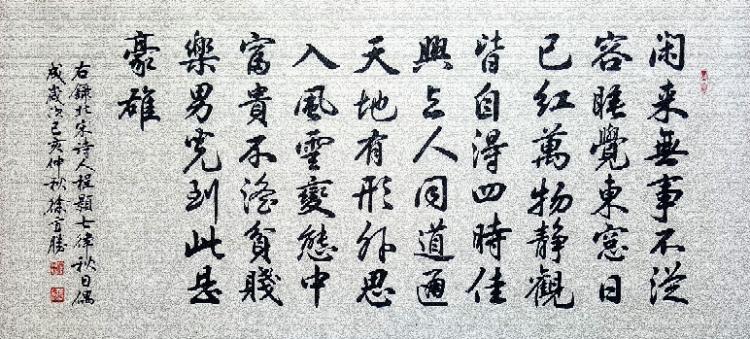 闲来無事不從
容睡覺東窓日
已紅萬物静觀
皆自得四時佳
興与人同道通
天地有形外思
入風雲變態中
富貴不淫貧賤
樂男児到此是
豪雄
右録北宋诗人程颢七律秋日偶
成歲次己亥仲秋徐勝